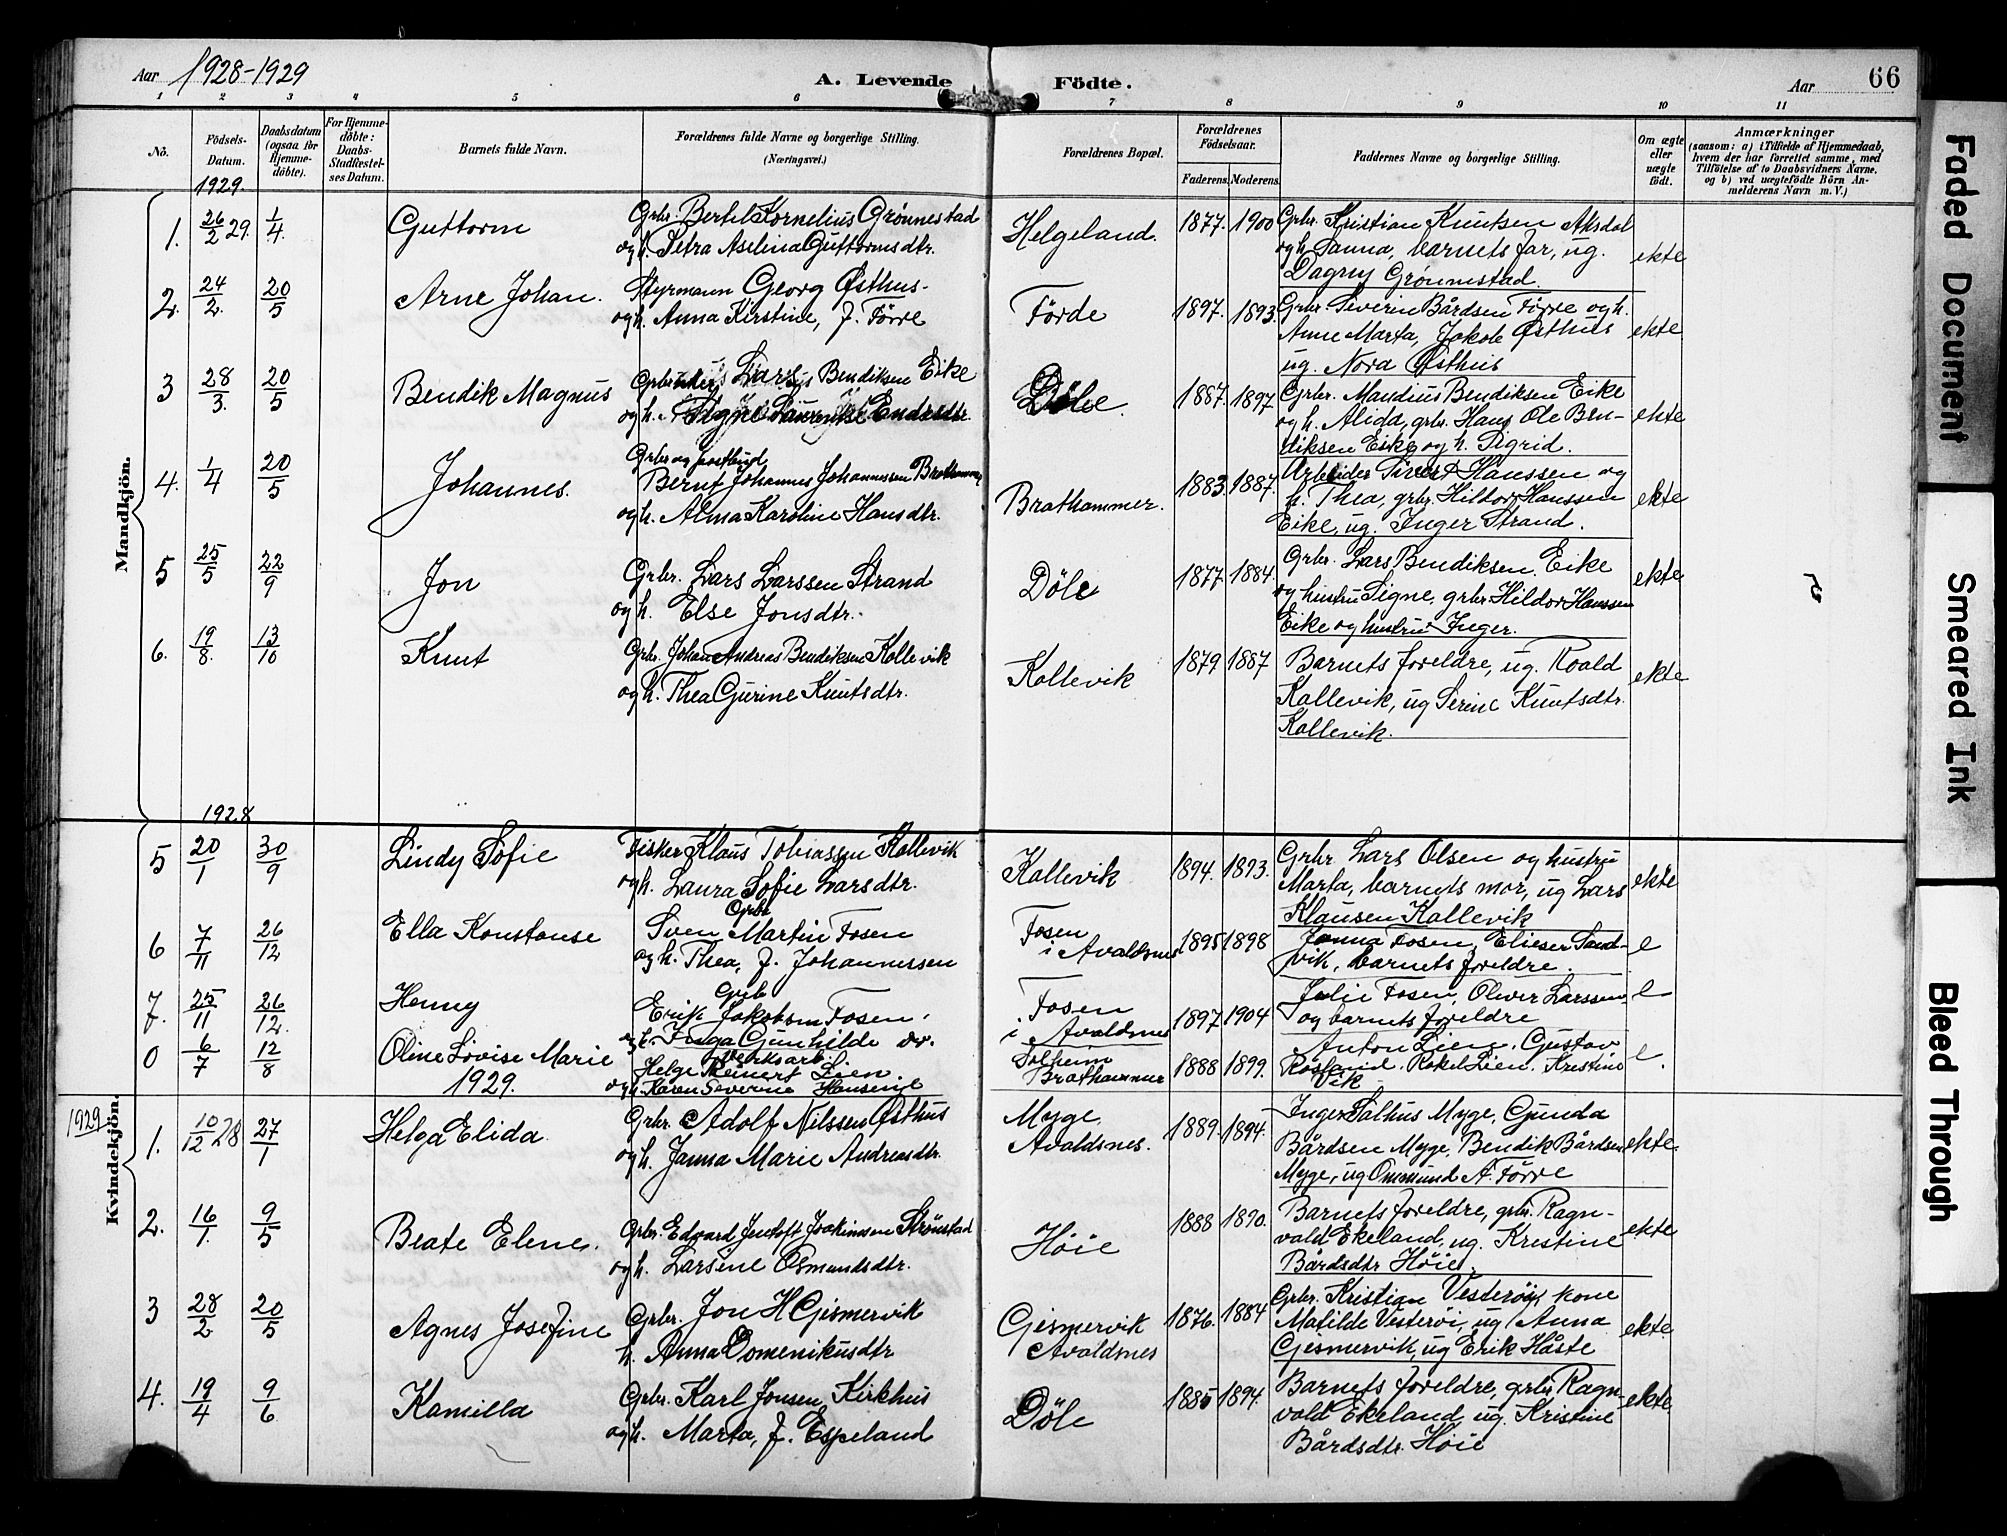 Aar 1928-1929
A. Levende Födte.
Aar 66
1 2 3 4 5 6 7 8 9 10 11
No.
Födsels-
Datum.
Daabsdatum
(ogsaa for
Hjemme-
döbte).
For Hjemme-
döbte:
Daabs-
Stadfæstel-
ses Datum.
Barnets fulde Navn.
Forældrenes fulde Navne og borgerlige Stilling.
(Næringsvei.)
Forældrenes Bopæl.
Forældrenes
Födselsaar.
Faderens. Moderens.
Faddernes Navne og borgerlige Stilling.
Om ægte
eller
uægte
födt.
Anmærkninger
(saasom: a) i Tilfælde af Hjemmedaab,
hvem der har forrettet samme, med
Tilföielse af to Daabsvidners Navne,
og b) ved uægtefödte Börn An-
melderens Navn m. V.)
Mandkjön.
1929.
1. 26/2 29. 1/4. Guttorm
Grbr. Bertel Kornelius Grönnestad
og h. Petra Aselina Guttormsdtr.
Helgeland. 1877. 1900
Grbr. Kristian Knutsen Aksdal
og h. Sanna, barnets far, ug.
Dagny Grönnestad.
ekte
2. 24/2. 20/5 Arne Johan.
Styrmann Georg Østhus-
og h. Anna Kirstine, f. Förre
Förde 1897. 1893.
Grbr. Siverin Bårdsen Förre og h.
Anne Marta, Jakob Østhus
ug. Nora Østhus
ekte
3 28/3. 20/5 Bendik Magnus
Lars Bendiksen Eike
og h. Endresdtr.
Döle. 1887. 1897
Grbr. Mandius Bendiksen Eike
og h. Alida, grbr. Hans Ole Ben-
diksen Eike og h. Sigrid.
ekte
4. 1/4 20/5 Johannes.
Grbr og postbud
Bernt Johannes Johannessen Brathammer
og h. Alma Karoline Hansdtr.
Brathammer. 1883. 1887.
Arbeider Sivert Hanssen og
h. Thea, grbr. Hildor Hanssen
Eike, ug. Inger Strand.
ekte
5 25/5 22/9 Jon
Grbr. Lars Larssen Strand
og h. Else Jonsdtr.
Döle 1877. 1884.
Grbr. Lars Bendiksen Eike
og hustru Signe, grbr Hildor Hanssen
Eike og hustru Inger.
ekte
6. 19/8. 13/10 Knut
Grbr. Johan Andreas Bendiksen Kallevik
og h. Thea Gurine Knutsdtr.
Kallevik 1879 1887
Barnets foreldre, ug. Roald
Kallevik, ug Serine Knutsdtr.
Kallevik.
ekte
Kvindekjön.
1928
5 20/1 30/9 Lindy Sofie
Fisker Klaus Tobiassen Kallevik
og h. Laura Sofie Larsdtr.
Kallevik 1894. 1893.
Grbr Lars Olsen og hustru
Marta, barnets mor, ug Lars
Klausen Kallevik
ekte
6 7/11 26/12 Ella Konstanse
Grbr
Sven Martin Fosen
og h. Thea, f. Johannessen
Fosen
i Avaldsnes 1895 1898
Janna Fosen, Elieser Sand-
vik, barnets foreldre.
e
7. 25/11 26/12. Henny
Grb
Erik Jakobsen Fosen,
og h. Inga Gunhilde
Fosen
i Avaldsnes 1897 1904
Julie Fosen, Oliver Larssen
og barnets foreldre
e
0 6/7 12/8 Oline Lovise Marie
Verksarb.
Helge Reinert Lien
og h. Karen Severine Hansene
Solheim
Brathammer 1888 1899.
Anton Lien. Gustav
Røslund. Rakel Lien. Kristine
Vik
e.
1929.
1929
1. 10/12 28 27/1 Helga Elida.
Grbr. Adolf Nilssen Østhus
og h. Janna Marie Andreasdtr.
Myge,
Avaldsnes. 1889. 1894.
Inger Salhus Myge, Gunda
Bårdsen Myge, Bendik Bårdsen
Myge, ug Ommund A. Förre
ekte.
2. 16/1. 9/5 Beate Elene.
Grbr. Edvard Jentoft Joakimsen Strönstad
og h. Larsine Osmundsdtr.
Höie 1888 1890.
Barnets foreldre, grbr. Ragn-
vald Ekeland, ug. Kristine
Bårdsdtr Höie.
ekte
3 28/2 20/5 Agnes Josefine
Grbr. Jon H Gismervik
h. Anna Domenikusdtr
Gismervik
Avaldsnes 1876. 1884
Grbr. Kristian Vesteröi, kone
Matilde Vesteröi, ug Anna
Gismervik, ug Erik Håste
ekte
4. 19/4 9/6 Kamilla
Grbr. Karl Jonsen Kirkhus
og h. Marta, f. Espeland
Döle 1885 1894.
Barnets foreldre, grbr Ragn-
vald Ekeland, ug. Kristine
Bårdsdtr. Höie
ekte.
Faded Document
Smeared Ink
Bleed Through